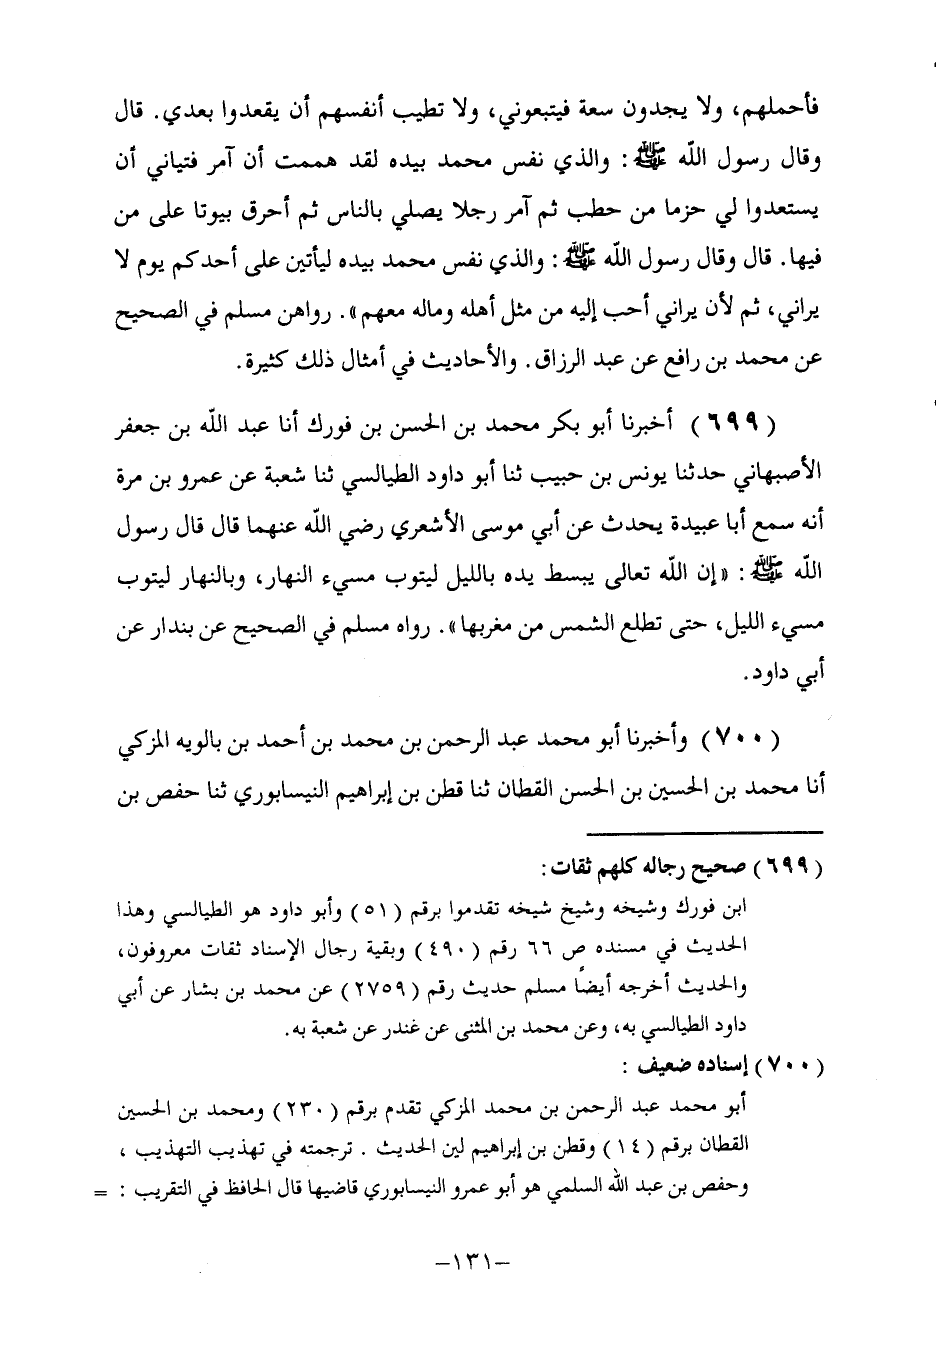 فأحملهم، ولا يجدون سعة فيتبعوني، ولا تطيب أنفسهم أن يقعدوا بعدي. قال
وقال رسول الله ﷺ: والذي نفس محمد بيده لقد هممت أن آمر فتياني أن
يستعدوا لي حزما من حطب ثم آمر رجلا يصلي بالناس ثم أحرق بيوتا على من
فيها. قال وقال رسول الله ﷺ: والذي نفس محمد بيده ليأتين على أحدكم يوم لا
يراني، ثم لأن يراني أحب إليه من مثل أهله وماله معهم». رواهن مسلم في الصحيح
عن محمد بن رافع عن عبد الرزاق. والأحاديث في أمثال ذلك كثيرة.
(٦٩٩) أخبرنا أبو بكر محمد بن الحسن بن فورك أنا عبد الله بن جعفر
الأصبهاني حدثنا يونس بن حبيب ثنا أبو داود الطيالسي ثنا شعبة عن عمرو بن مرة
أنه سمع أبا عبيدة يحدث عن أبي موسى الأشعري رضي الله عنهما قال قال رسول
الله ﷺ: «إن الله تعالى يبسط يده بالليل ليتوب مسيء النهار، وبالنهار ليتوب
مسيء الليل، حتى تطلع الشمس من مغربها». رواه مسلم في الصحيح عن بندار عن
أبي داود.
(٧٠٠) وأخبرنا أبو محمد عبد الرحمن بن محمد بن أحمد بن بالويه المزكي
أنا محمد بن الحسين بن الحسن القطان ثنا قطن بن إبراهيم النيسابوري ثنا حفص بن
(٦٩٩) صحيح رجاله كلهم ثقات:
ابن فورك وشيخه وشيخ شيخه تقدموا برقم (٥١) وأبو داود هو الطيالسي وهذا
الحديث في مسنده ص ٦٦ رقم (٤٩٠) وبقية رجال الإسناد ثقات معروفون،
والحديث أخرجه أيضاً مسلم حديث رقم (٢٧٥٩) عن محمد بن بشار عن أبي
داود الطيالسي به، وعن محمد بن المثنى عن غندر عن شعبة به.
(٧٠٠) إسناده ضعيف:
أبو محمد عبد الرحمن بن محمد المزكي تقدم برقم (٢٣٠) ومحمد بن الحسين
القطان برقم (١٤) وقطن بن إبراهيم لين الحديث. ترجمته في تهذيب التهذيب،
وحفص بن عبد الله السلمي هو أبو عمرو النيسابوري قاضيها قال الحافظ في التقريب: =
-١٣١-